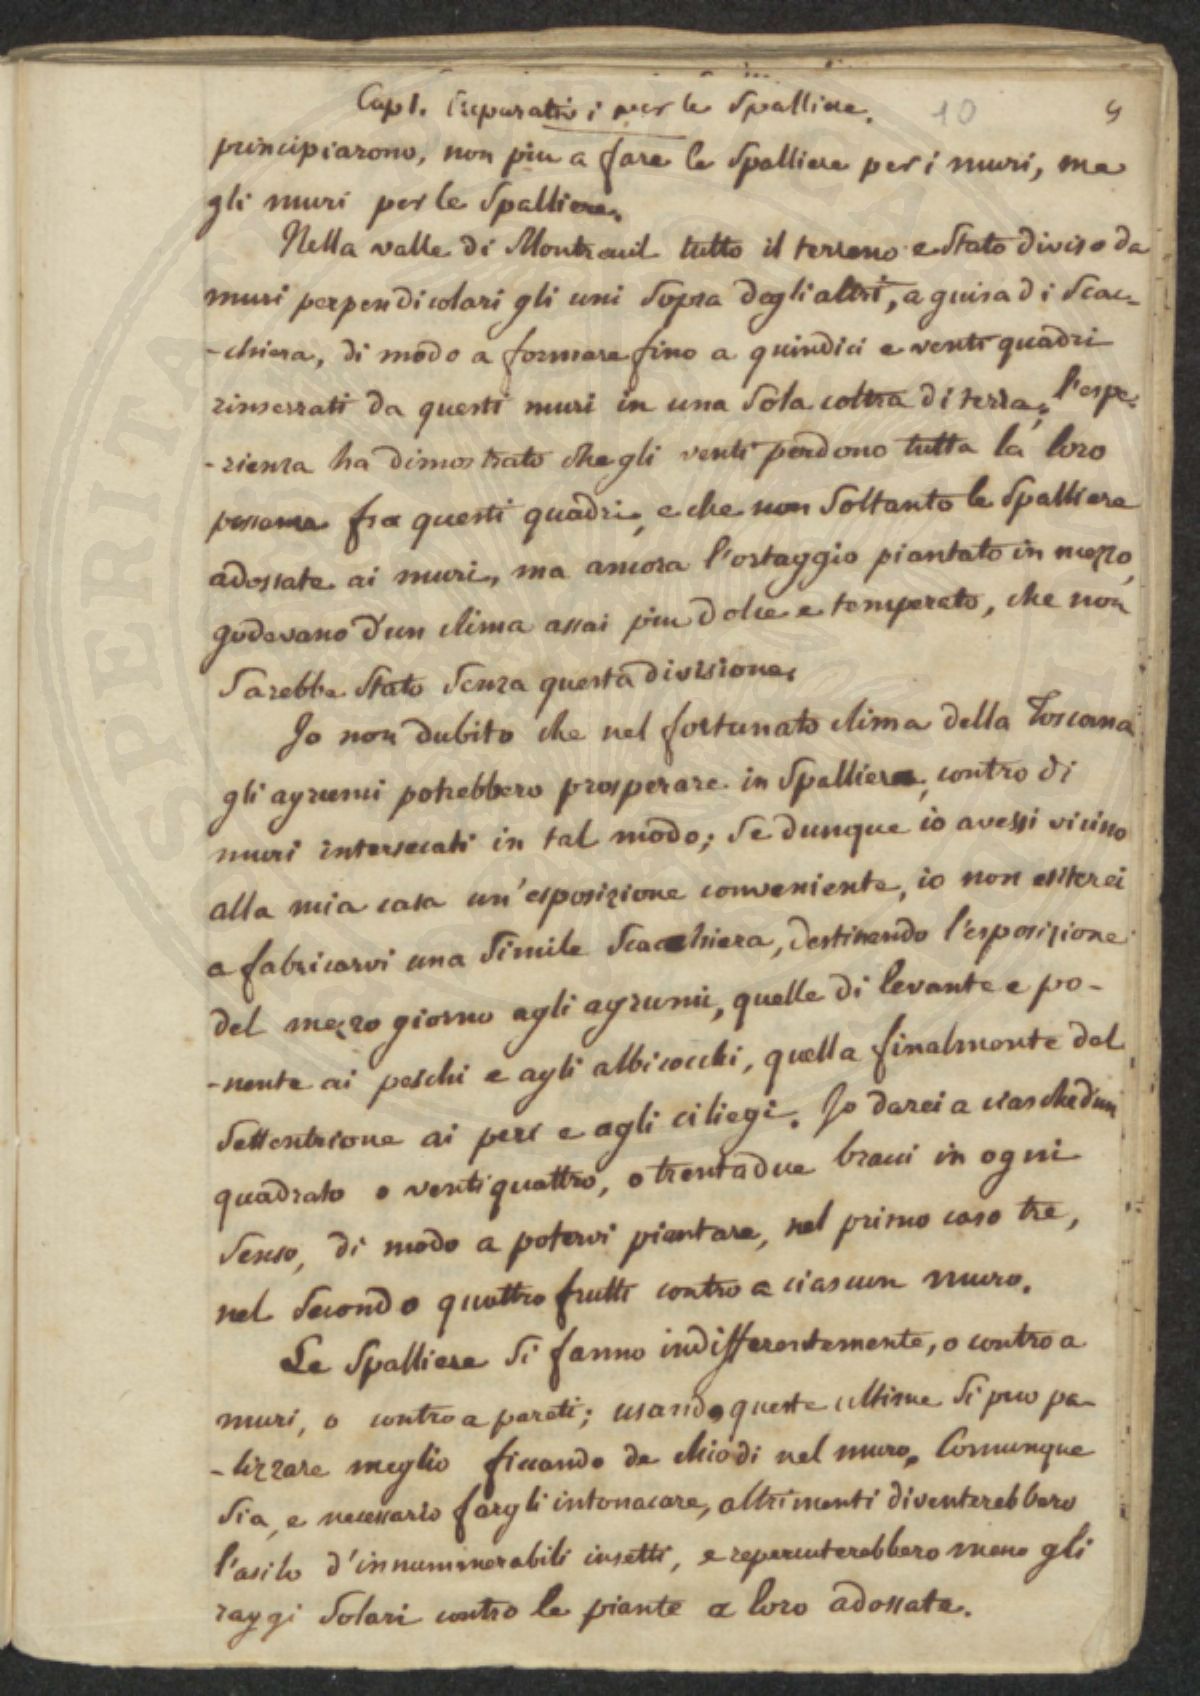 Cap I. Preparativi per le Spalliere. 10 9
principiarono, non piu a fare le Spalliere per i muri, ma
gli muri per le Spalliere.
Nella valle di Montreuil tutto il terreno e Stato diviso da
muri perpendicolari gli uni Sopra degli altri, a guisa di Scac-
-chiera, di modo a formare fino a quindici e venti quadri
rinserrati da questi muri in una Sola coltra di terra; l'espe-
-rienza ha dimostrato che gli venti perdono tutta la loro
possanza fra questi quadri, e che non Soltanto le Spalliere
adossate ai muri, ma ancora l'ortaggio piantato in mezzo,
godevano d'un clima assai piu dolce e temperato, che non
Sarebbe Stato Senza questa divisione.
Io non dubito che nel fortunato clima della Toscana
gli agrumi potrebbero prosperare in Spalliera, contro di
muri intersecati in tal modo; Se dunque io avessi vicino
alla mia casa un'esposizione conveniente, io non esiterei
a fabricarvi una Simile Scacchiera, destinando l'esposizione
del mezzo giorno agli agrumi, quelle di levante e po-
-nente ai peschi e agli albicocchi, quella finalmente del
Settentrione ai peri e agli ciliegi. Io darei a ciaschedun
quadrato o venti quattro, o trentadue bracci in ogni
Senso, di modo a potervi piantare, nel primo caso tre,
nel Secondo quattro frutti contro a ciascun muro.
Le Spalliere Si fanno indifferentemente, o contro a
muri, o contro a pareti; usando queste ultime Si puo pa-
-lizzare meglio ficcando de chiodi nel muro. Comunque
Sia, e necessario fargli intonacare, altrimenti diventerebbero
l'asilo d'innummerabili insetti, e repercuterebbero meno gli
raggi Solari contro le piante a loro adossate.
SPERITAT